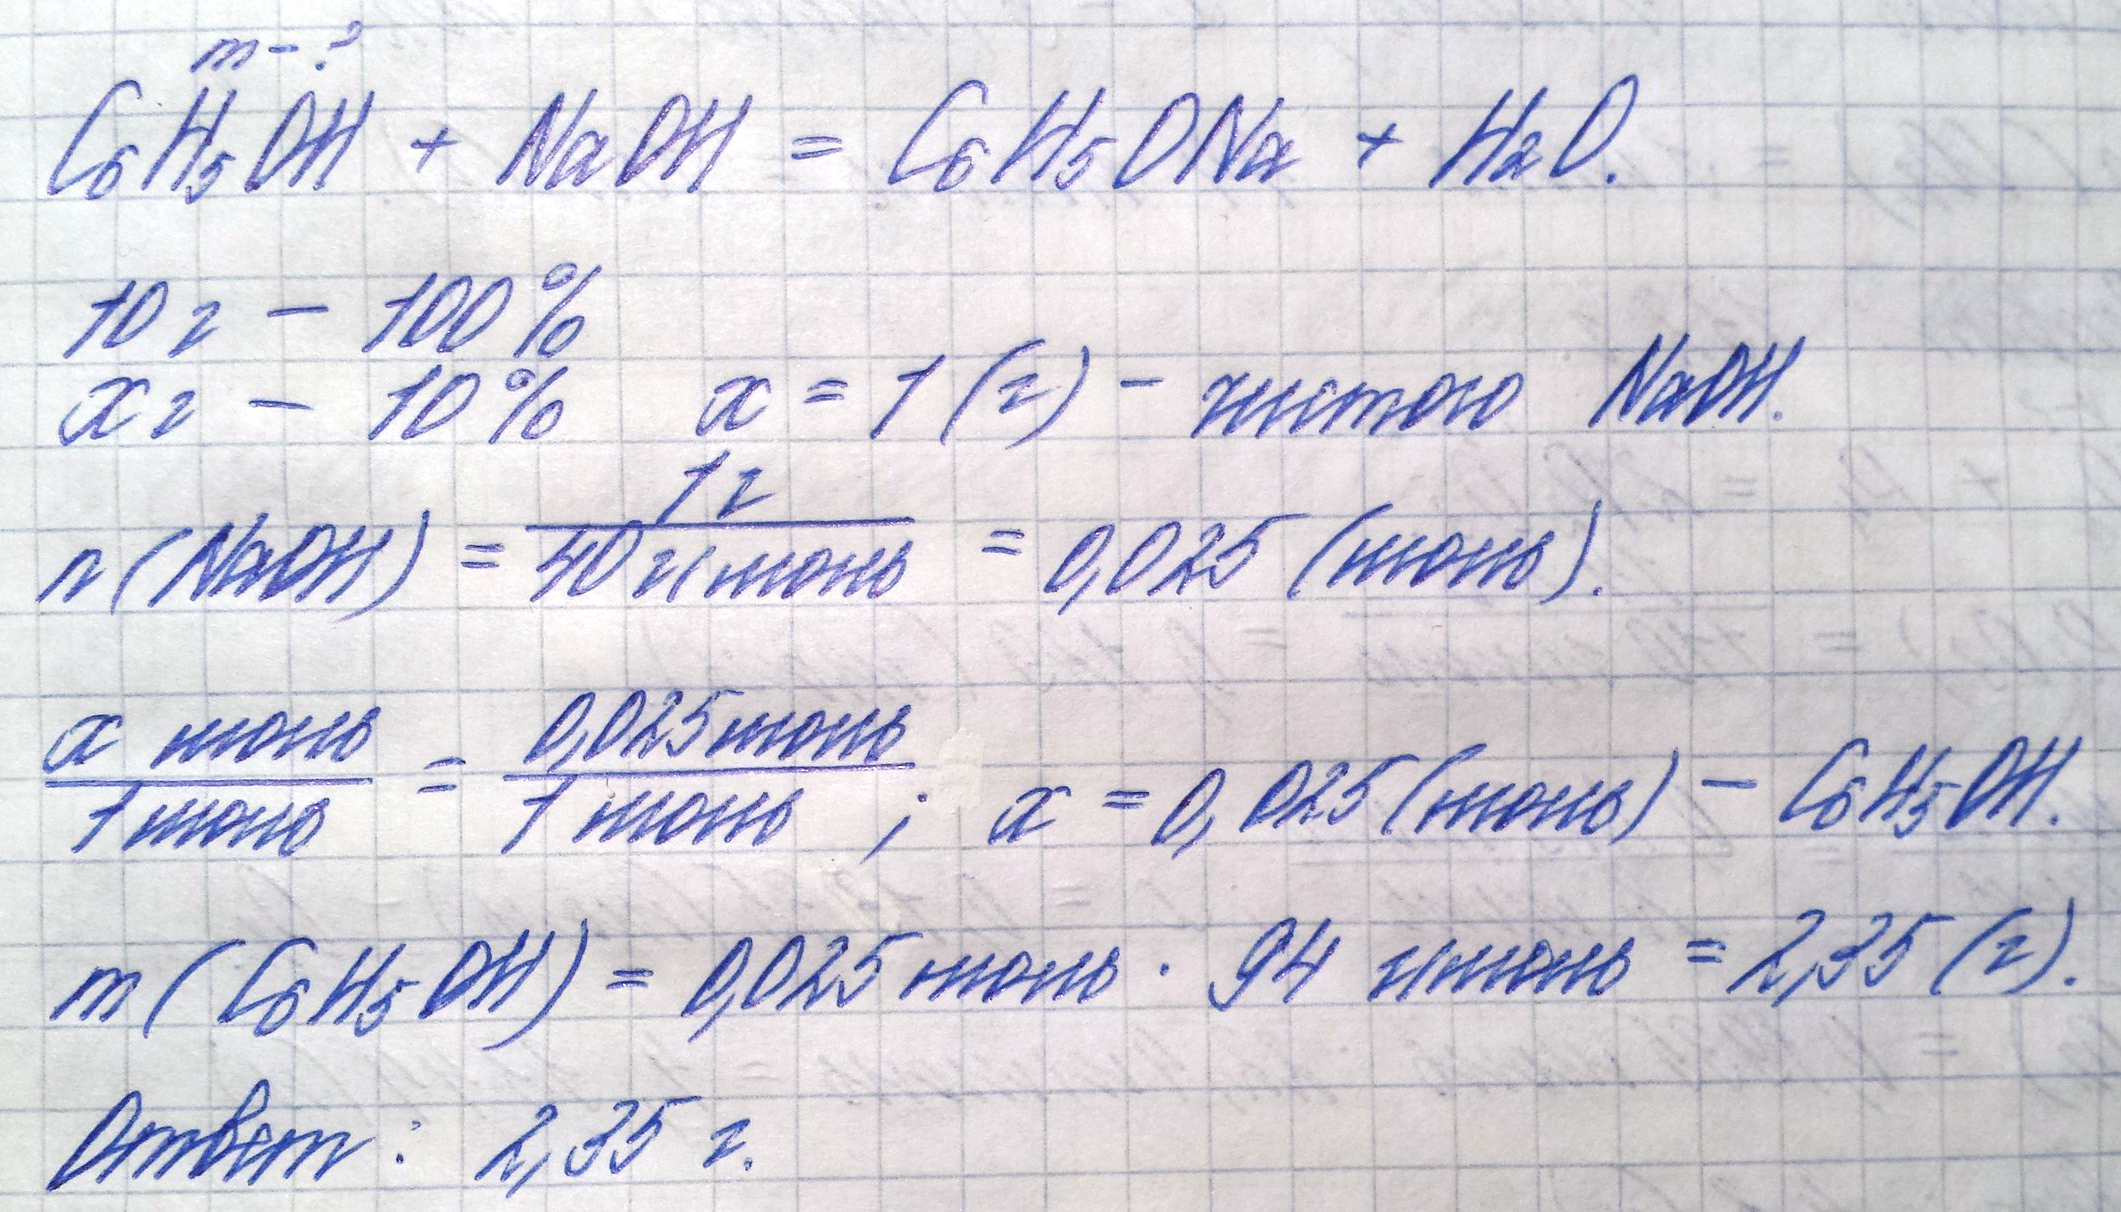 m - ?
C6H5OH + NaOH = C6H5ONa + H2O.
10 г - 100%
x г - 10% x = 1 (г) - чистого NaOH.
n (NaOH) = 1г / 40 г/моль = 0,025 (моль).
x моль / 1 моль = 0,025 моль / 1 моль ; x = 0,025 (моль) - C6H5OH.
m (C6H5OH) = 0,025 моль · 94 г/моль = 2,35 (г).
Ответ: 2,35 г.